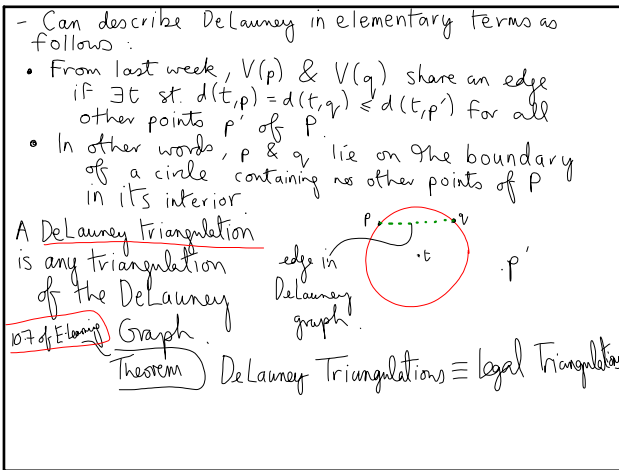 - Can describe DeLauney in elementary terms as
follows :
• From last week, V(p) & V(q) share an edge
if ∃t st. d(t,p) = d(t,q) ≤ d(t,p') for all
other points p' of P.
• In other words, p & q lie on the boundary
of a circle containing no other points of P
in its interior
A DeLauney triangulation
is any triangulation
of the DeLauney
Graph.
p
q
t
p'
edge in
DeLauney
graph.
107 of E-learning
Theorem
DeLauney Triangulations ≡ Legal Triangulations